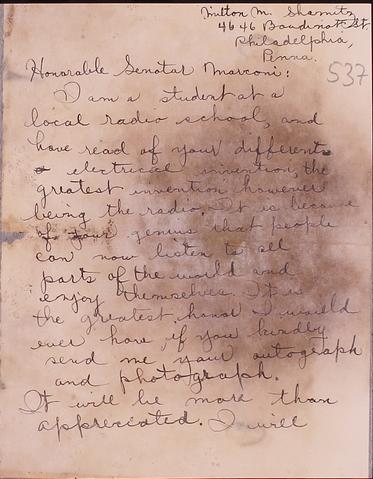 Milton M.
4646 Boudinot St
Philadelphia,
Penna.
537
Honorable Senator Marconi:
I am a student at a
local radio school, and
have read of your different
electrical invention, the
greatest invention however
being the radio. It is because
of your genius that people
can now listen to all
parts of the world and
enjoy themselves. It is
the greatest honor I would
ever have if you kindly
send me your autograph
and photograph.
It will be more than
appreciated. I will